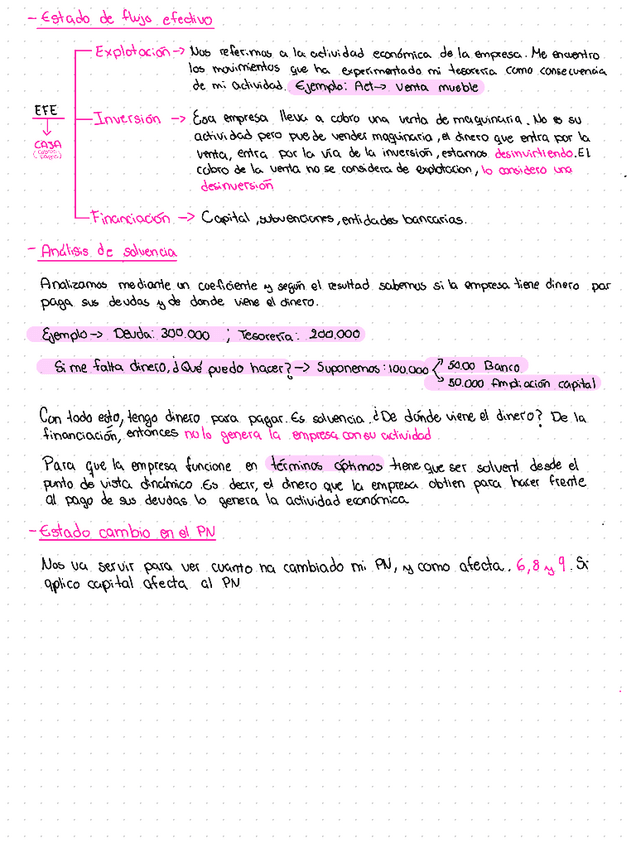 - Estado de flujo efectivo
Explotación -> Nos referimos a la actividad económica de la empresa. Me encuentro
los movimientos que ha experimentado mi tesorería como consecuencia
de mi actividad. Ejemplo: Act-> Venta mueble
EFE
CAJA
Inversión -> Esa empresa lleva a cobro una venta de maquinaria. No es su
actividad pero puede vender maquinaria, el dinero que entra por la
venta, entra por la vía de la inversión, estamos desinvirtiendo. El
cobro de la venta no se considera de explotación, lo considero una
desinversión
Financiación -> Capital, subvenciones, entidades bancarias.
- Análisis de solvencia
Analizamos mediante un coeficiente y según el resultad sabemos si la empresa tiene dinero par
paga sus deudas y de donde viene el dinero.
Ejemplo -> Deuda: 300.000 ; Tesorería: 200.000
Si me falta dinero, ¿Qué puedo hacer? -> Suponemos: 100.000
50.00 Banco
50.000 Ampliación capital
Con todo esto, tengo dinero para pagar. Es solvencia. ¿De dónde viene el dinero? De la
financiación, entonces no lo genera la empresa con su actividad
Para que la empresa funcione en términos óptimos tiene que ser solvent desde el
punto de vista dinámico. Es decir, el dinero que la empresa obtien para hacer frente
al pago de sus deudas lo genera la actividad económica
- Estado cambio en el PN
Nos va servir para ver cuanto ha cambiado mi PN, y como afecta. 6, 8 y 9. Si
aplico capital afecta al PN